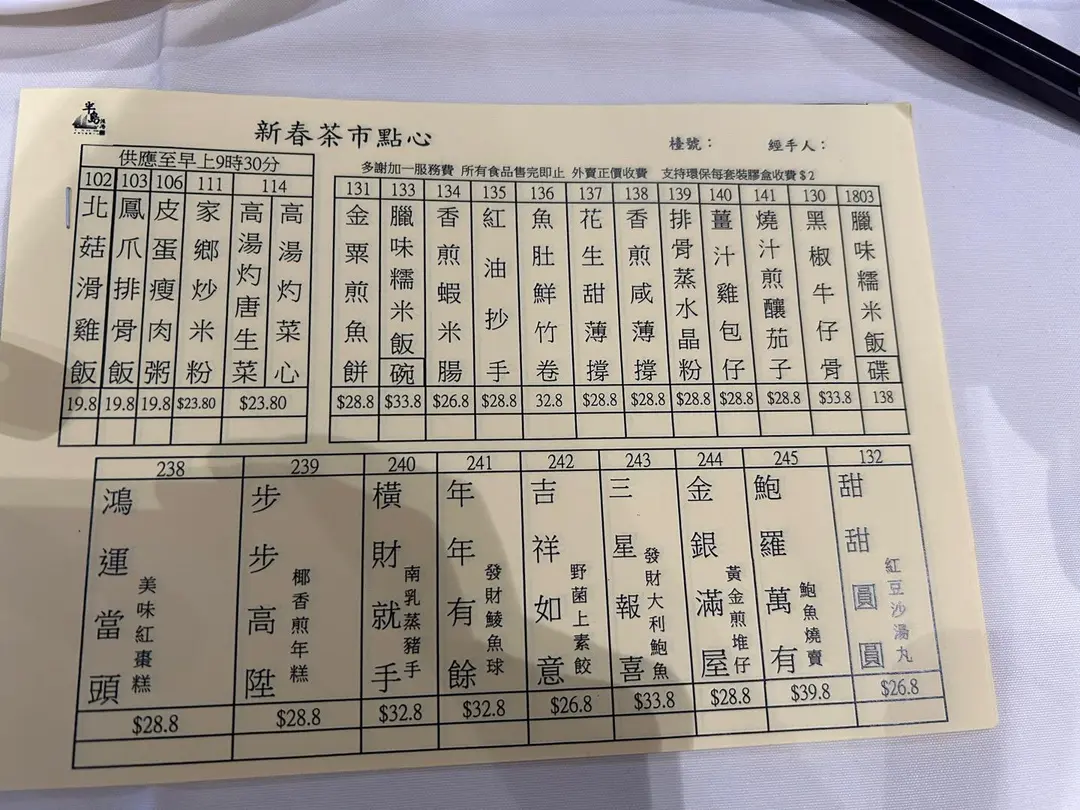 半島
新春茶市點心
檯號：
經手人：
供應至早上9時30分
多謝加一服務費 所有食品售完即止 外賣正價收費 支持環保每套裝膠盒收費$2
102
北菇滑雞飯
19.8
103
鳳爪排骨飯
19.8
106
皮蛋瘦肉粥
19.8
111
家鄉炒米粉
$23.80
114
高湯灼唐生菜
高湯灼菜心
$23.80
131
金粟煎魚餅
$28.8
133
臘味糯米飯
碗
$33.8
134
香煎蝦米腸
$26.8
135
紅油抄手
$28.8
136
魚肚鮮竹卷
32.8
137
花生甜薄撐
$28.8
138
香煎咸薄撐
$28.8
139
排骨蒸水晶粉
$28.8
140
薑汁雞包仔
$28.8
141
燒汁煎釀茄子
$28.8
130
黑椒牛仔骨
$33.8
1803
臘味糯米飯
碟
138
238
鴻運當頭
美味紅棗糕
$28.8
239
步步高陞
椰香煎年糕
$28.8
240
橫財就手
南乳蒸豬手
$32.8
241
年年有餘
發財鯪魚球
$32.8
242
吉祥如意
野菌上素餃
$26.8
243
三星報喜
發財大利鮑魚
$33.8
244
金銀滿屋
黃金煎堆仔
$28.8
245
鮑羅萬有
鮑魚燒賣
$39.8
132
甜甜圓圓
紅豆沙湯丸
$26.8